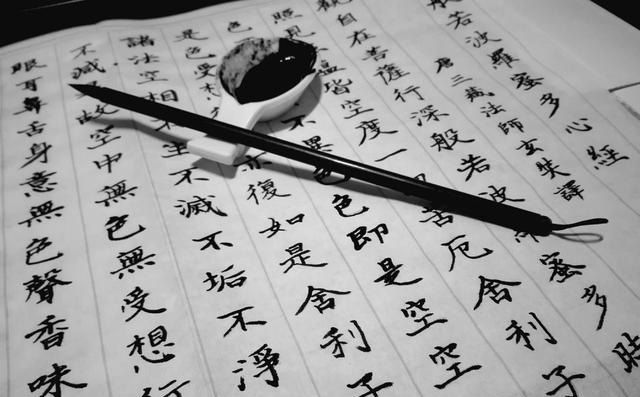 般若波羅蜜多心經
唐三藏法師玄奘譯
觀自在菩薩行深般若波蜜多時
照見皆空度一苦厄舍利子
色不異色即是空空
是色受亦復如是舍利子
諸法空相不生不滅不垢不淨
不減故空中無色無受想行
眼耳鼻舌身意無色聲香味